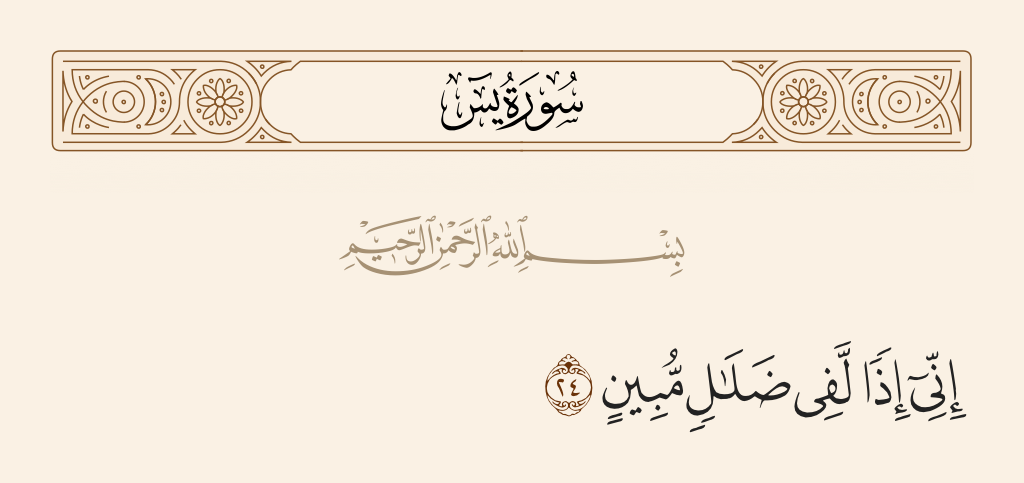 سُورَةُ يسٓ
بِسْمِ ٱللَّهِ ٱلرَّحْمَٰنِ ٱلرَّحِيمِ
إِنِّىٓ إِذًا لَّفِى ضَلَٰلٍ مُّبِينٍ ٢٤